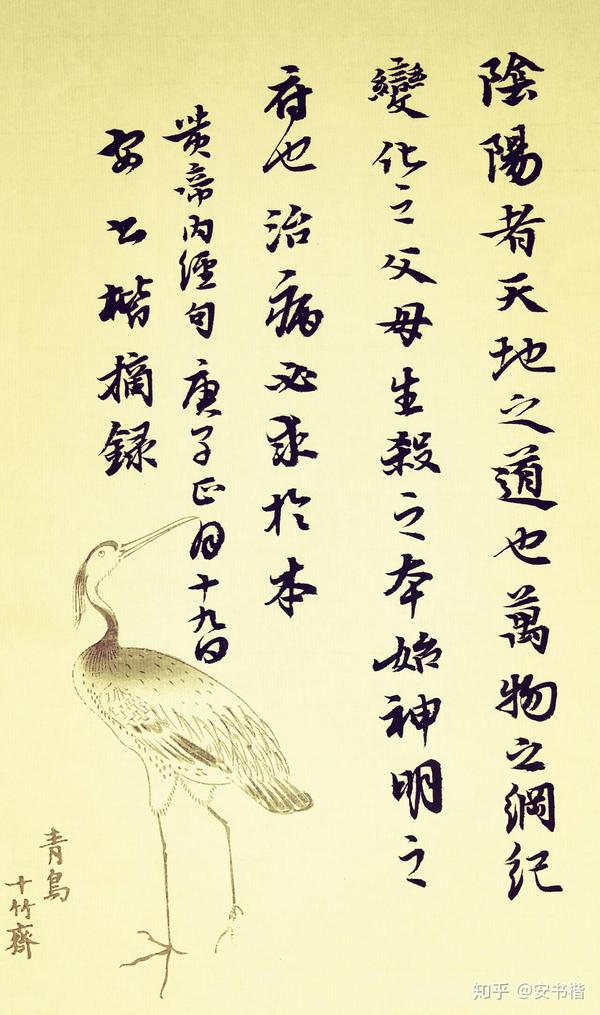 陰陽者天地之道也萬物之綱紀
變化之父母生殺之本始神明之
府也治病必求於本
黄帝内經句庚子正月十九日
安書楷摘録
青鳥
十竹齋
知乎 @安书楷